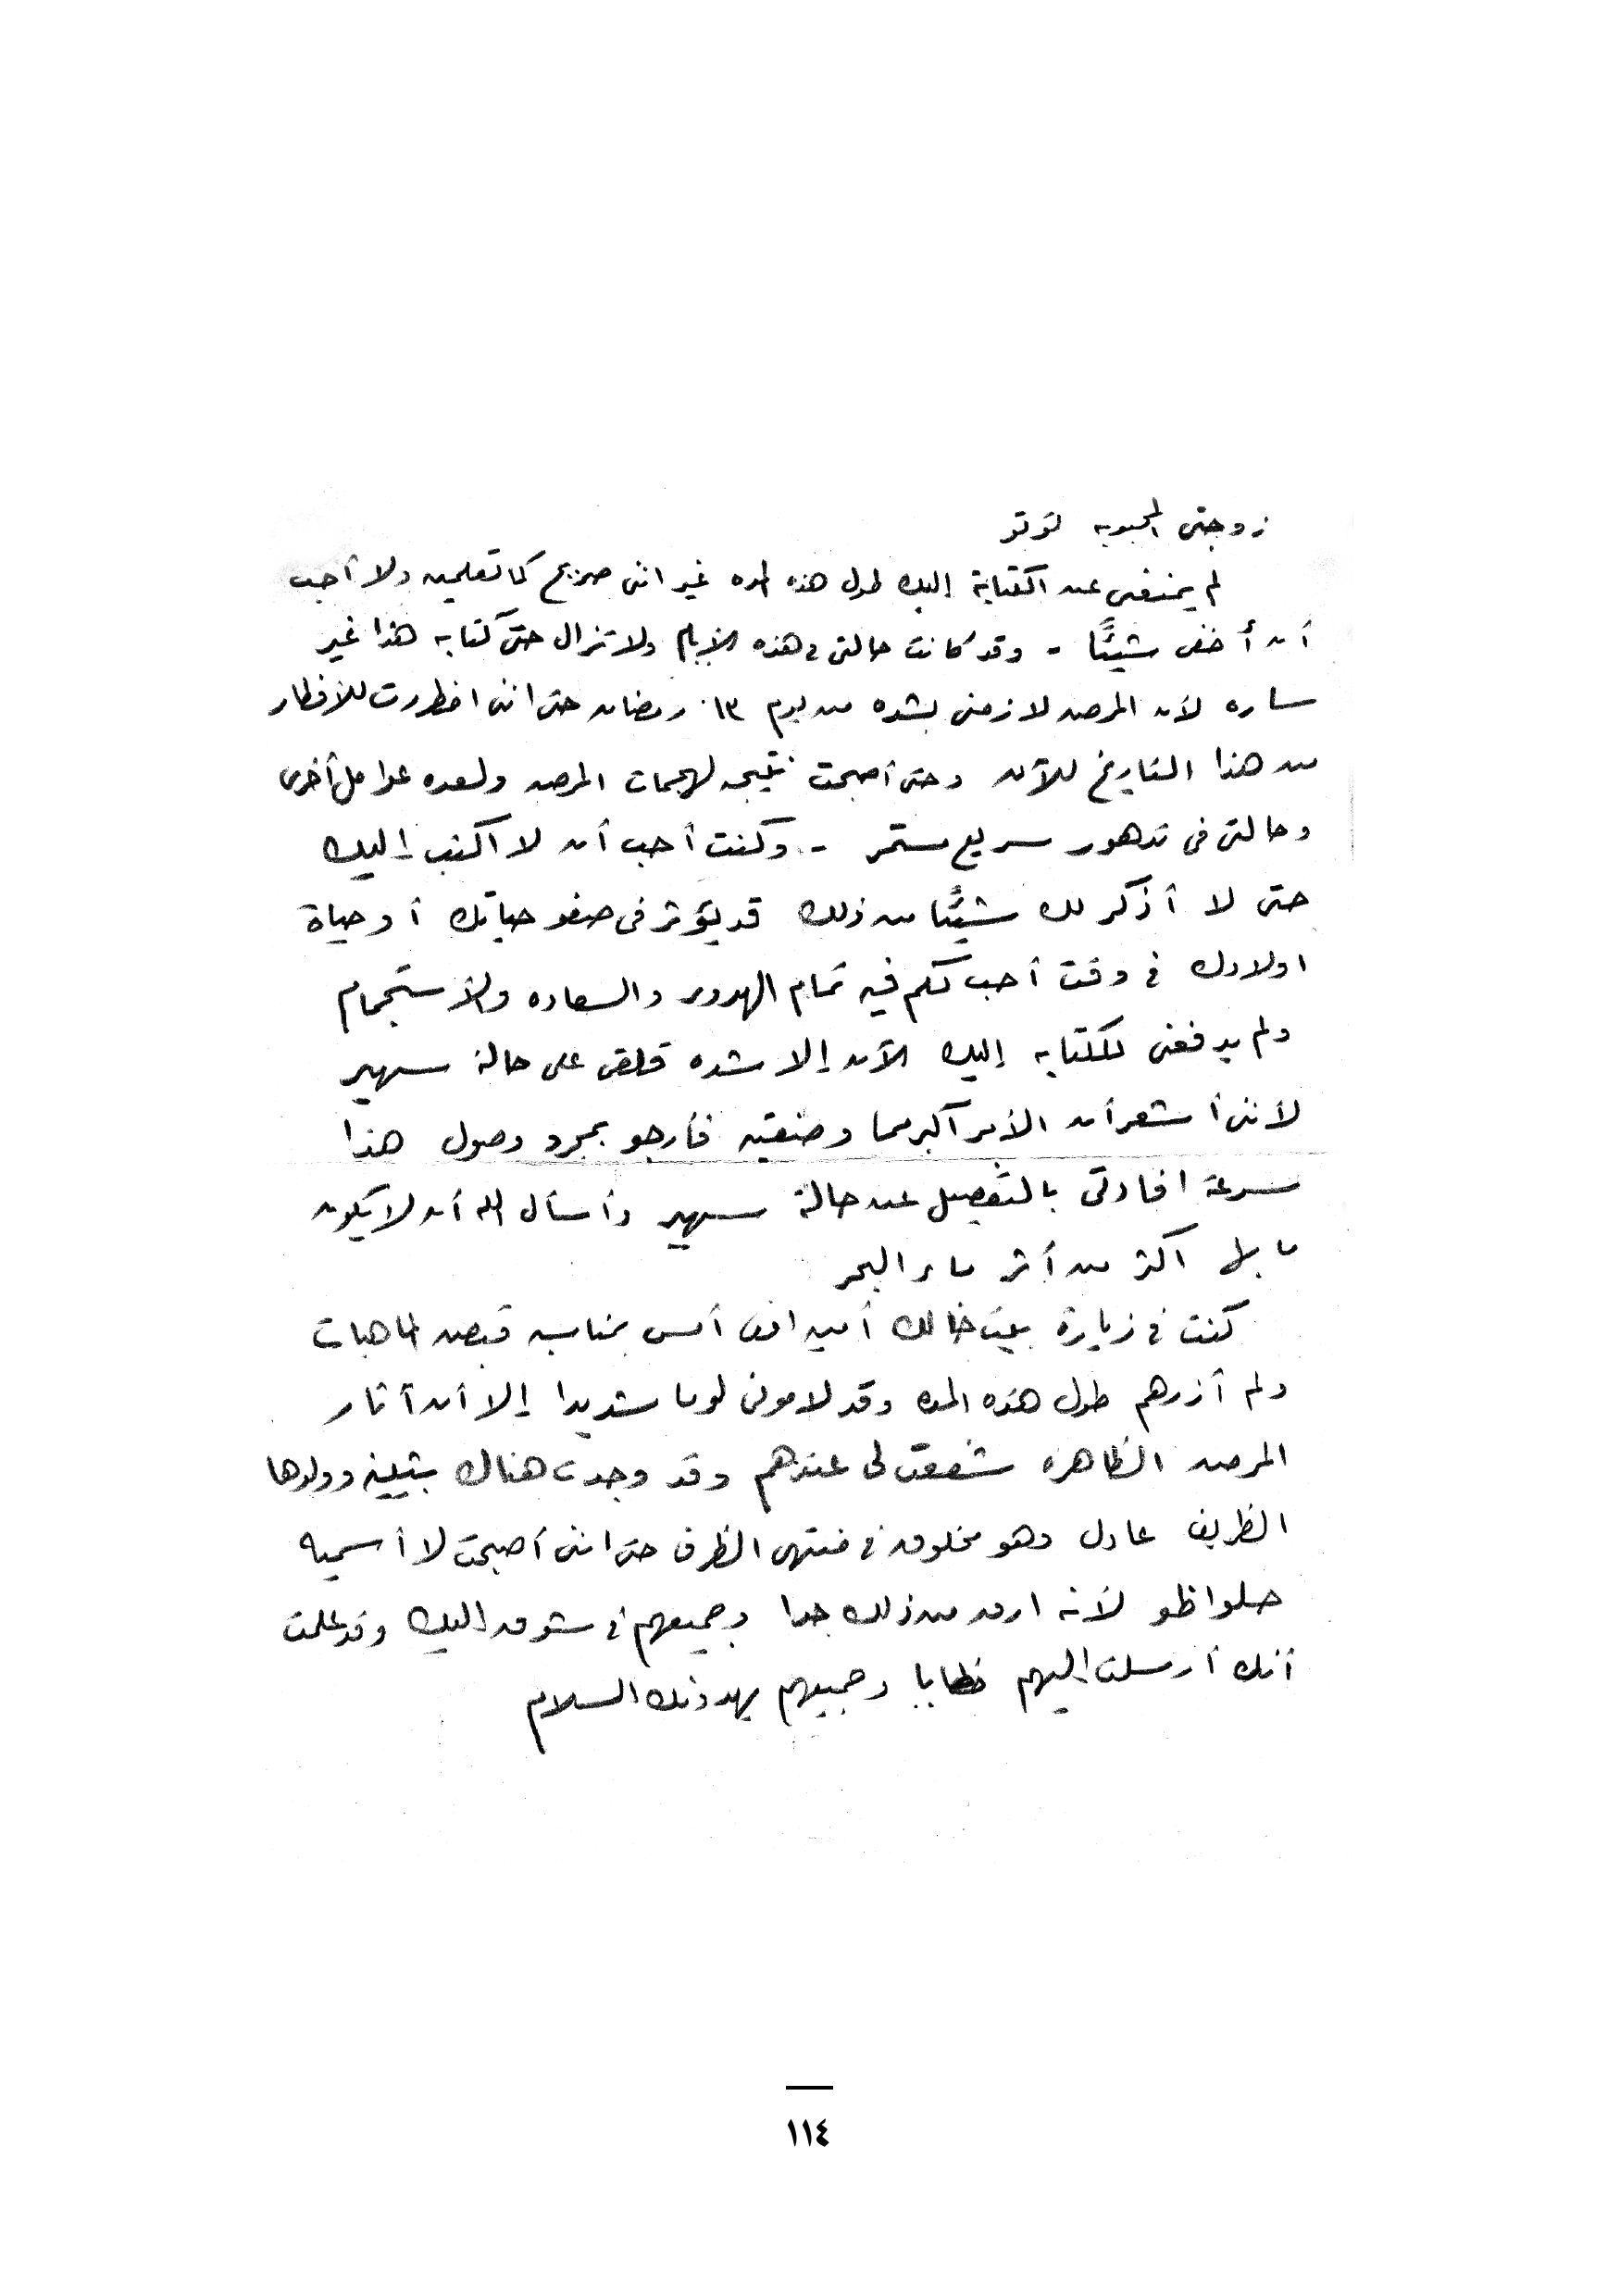 زوجتى المحبوبه توتو
لم يمنعنى عن الكتابة إليك طول هذه المده غير اننى صريح كما تعلمين ولا أحب
أن أخفى شيئًا - وقد كانت حالتى فى هذه الأيام ولا تزال حتى كتابه هذا غير
ساره لأن المرض لازمنى بشده من يوم ١٣ رمضان حتى اننى اضطررت للأفطار
من هذا التاريخ للآن وحتى أصبحت نتيجه لهجمات المرض ولعده عوامل أخرى
وحالتى فى تدهور سريع مستمر - وكنت أحب أن لا اكتب إليك
حتى لا أذكر لك شيئًا من ذلك قد يؤثر فى صفو حياتك أو حياة
اولادك فى وقت أحب لكم فيه تمام الهدوء والسعاده والأستجمام
ولم يدفعنى للكتابه إليك الآن إلا شده قلقى على حالة سهير
لأننى أشعر أن الأمر أكبر مما وصفتيه فأرجو بمجرد وصول هذا
سرعة افادتى بالتفصيل عن حالة سهير وأسأل الله أن لا يكون
ما بها اكثر من أثر ماء البحر
كنت فى زيارة بيت خالك أمين افندى أمس بمناسبه قبض الماهيات
ولم أزرهم طول هذه المده وقد لامونى لوما شديدا إلا أن آثار
المرض الظاهره شفعت لى عندهم وقد وجدت هناك بثينه وولدها
الظريف عادل وهو مخلوق فى منتهى الظرف حتى اننى أصبحت لا أسميه
حلواظو لأنه ارق من ذلك جدا وجميعهم فى شوق اليك وقد علمت
أنك أرسلت إليهم خطابا وجميعهم يهدونك السلام
١١٤